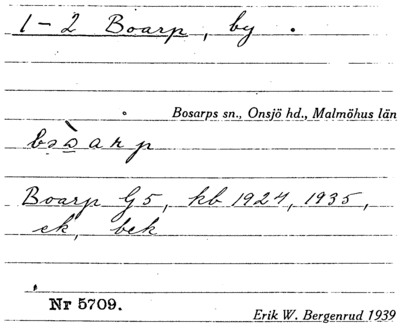 1-2 Boarp, by.
Bosarps sn., Onsjö hd., Malmöhus län
Boarp G5, kb 1924, 1935,
ek, bek
Nr 5709.
Erik W. Bergenrud 1939